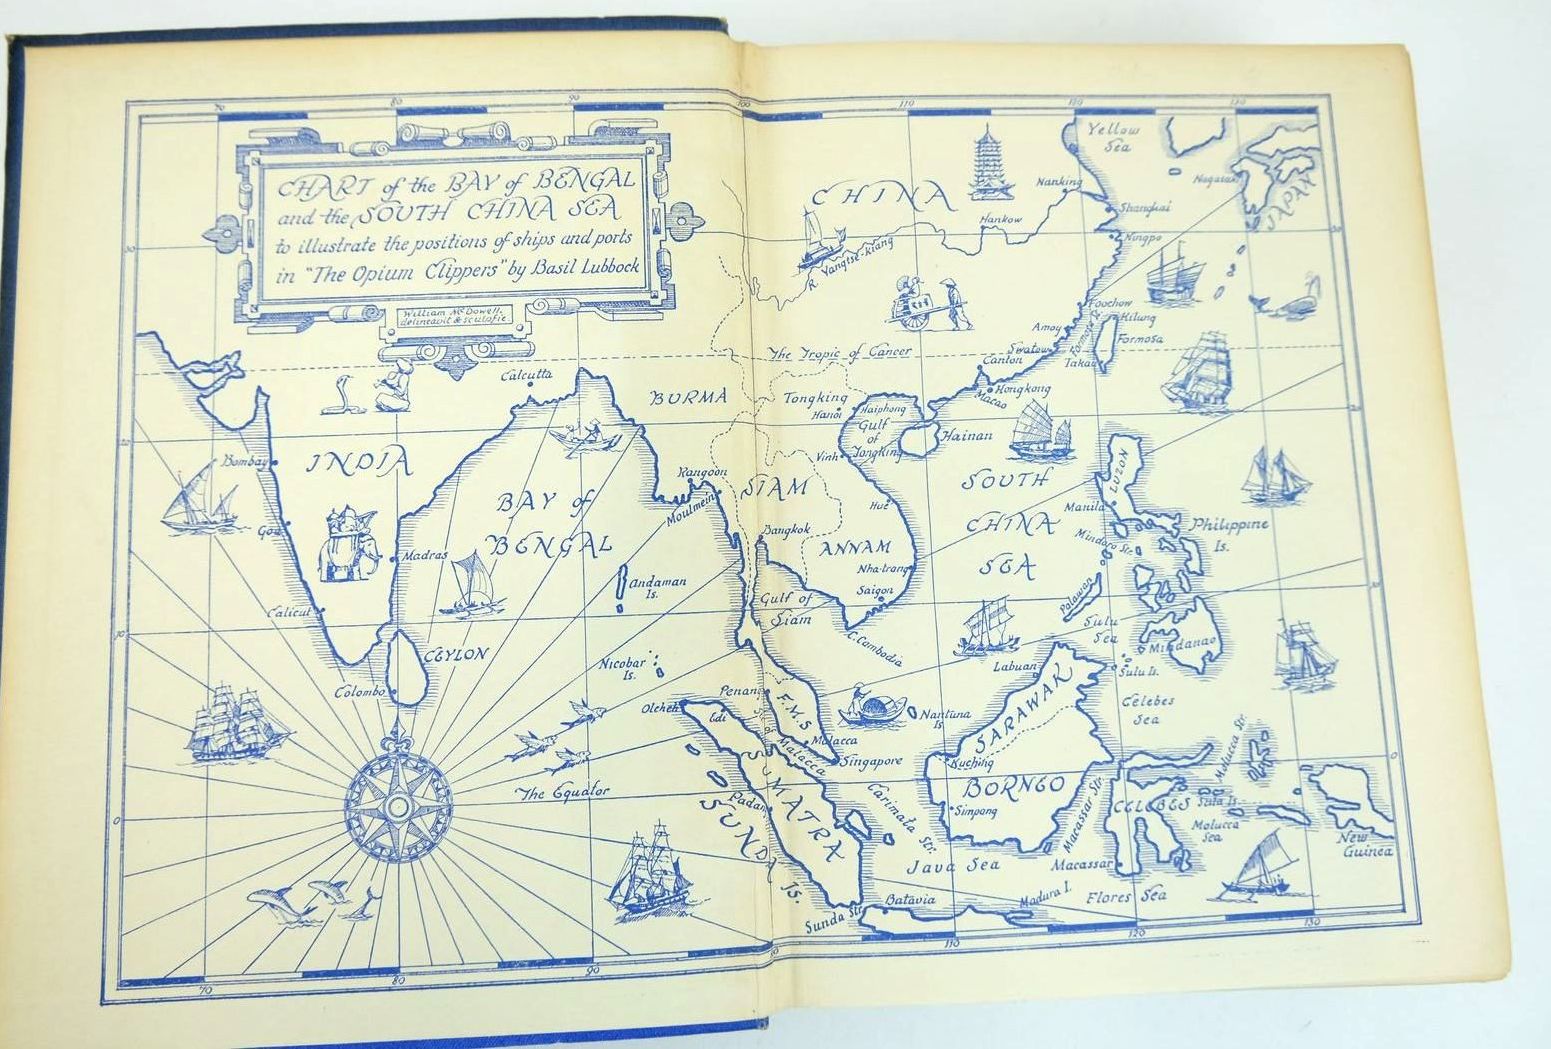 CHART of the BAY of BENGAL
and the SOUTH CHINA SEA
to illustrate the positions of ships and ports
in "The Opium Clippers" by Basil Lubbock
William McDowell.
delineavit & sculpsit.
70
80
90
100
110
120
130
30
30
20
20
10
10
0
0
Yellow
Sea
CHINA
Nanking
Nagasaki
JAPAN
Hankow
Shanghai
Ningpo
R. Yangtse-kiang
Foochow
Kilung
Amoy
Formosa Str.
Formosa
Swatow
Takau
The Tropic of Cancer
Canton
Hongkong
Macao
Calcutta
BURMA
Tongking
Hanoi
Haiphong
Gulf
of
Tongking
Hainan
Vinh
INDIA
Bombay
Goa
Madras
Calicut
CEYLON
Colombo
BAY of
BENGAL
Rangoon
Moulmein
SIAM
Bangkok
Hue
ANNAM
Nha-trang
Saigon
Gulf of
Siam
C. Cambodia
SOUTH
CHINA
SEA
LUZON
Manila
Mindoro Str.
Philippine
Is.
Palawan
Sulu
Sea
Mindanao
Sulu Is.
Andaman
Is.
Nicobar
Is.
Penang
Oleheh
Edi
F.M.S.
Str. of
Malacca
Malacca
Singapore
Nantuna
Is.
Labuan
SARAWAK
Kuching
BORNEO
Simpong
Celebes
Sea
Molucca Str.
CELEBES
Sula Is.
Molucca
Sea
Macassar Str.
Macassar
New
Guinea
The Equator
Padang
SUMATRA
SUNDA Is.
Carimata Str.
Java Sea
Batavia
Sunda Str.
Madura I.
Flores Sea
70
80
90
110
120
130